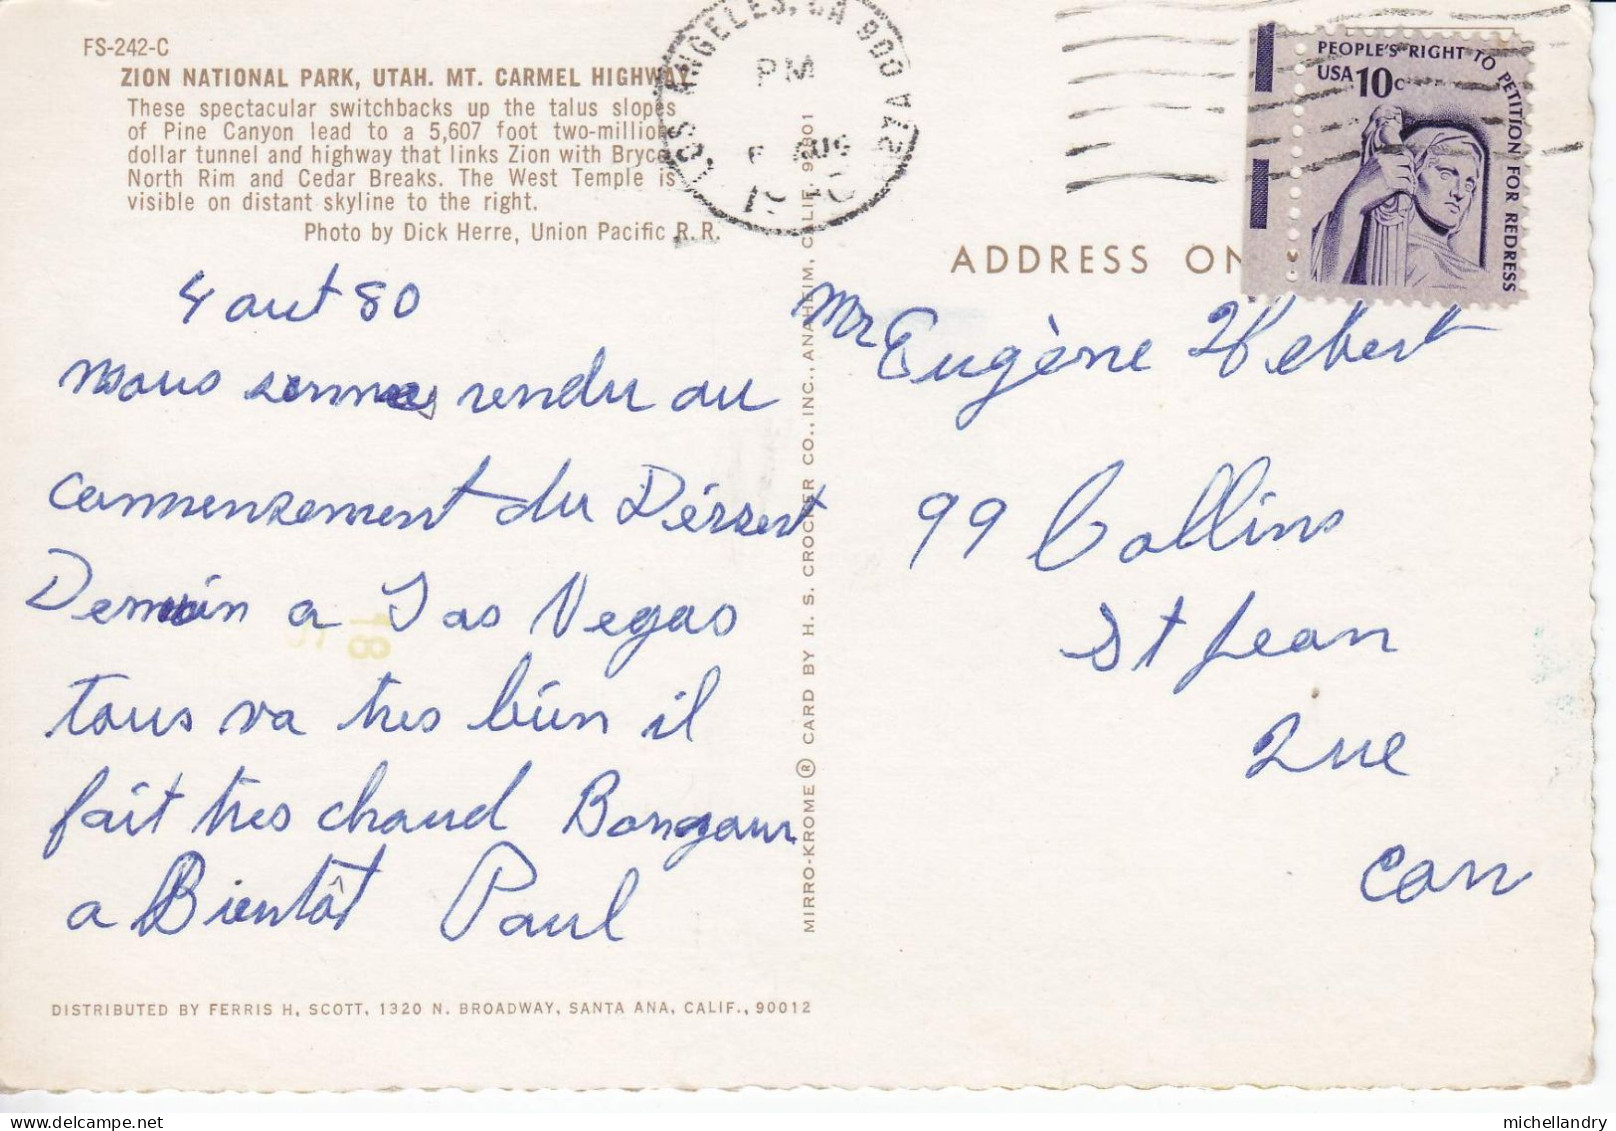 FS-242-C
ZION NATIONAL PARK, UTAH. MT. CARMEL HIGHWAY
These spectacular switchbacks up the talus slopes
of Pine Canyon lead to a 5,607 foot two-million
dollar tunnel and highway that links Zion with Bryce,
North Rim and Cedar Breaks. The West Temple is
visible on distant skyline to the right.
Photo by Dick Herre, Union Pacific R.R.
LOS ANGELES, CA 900
PM
AUG
PEOPLE'S RIGHT TO PETITION FOR REDRESS
USA 10c
ADDRESS ON
4 aut 80
nous somme rendu au
commensement du Dérsert
Demain a Las Vegas
tous va tres bien il
fait tres chaud Bonjour
a Bientôt Paul
Mr Eugène Hebert
99 Collins
St Jean
Que
Can
MIRRO-KROME® CARD BY H. S. CROCKER CO., INC., ANAHEIM, CALIF. 92801
DISTRIBUTED BY FERRIS H. SCOTT, 1320 N. BROADWAY, SANTA ANA, CALIF., 90012
michellandry